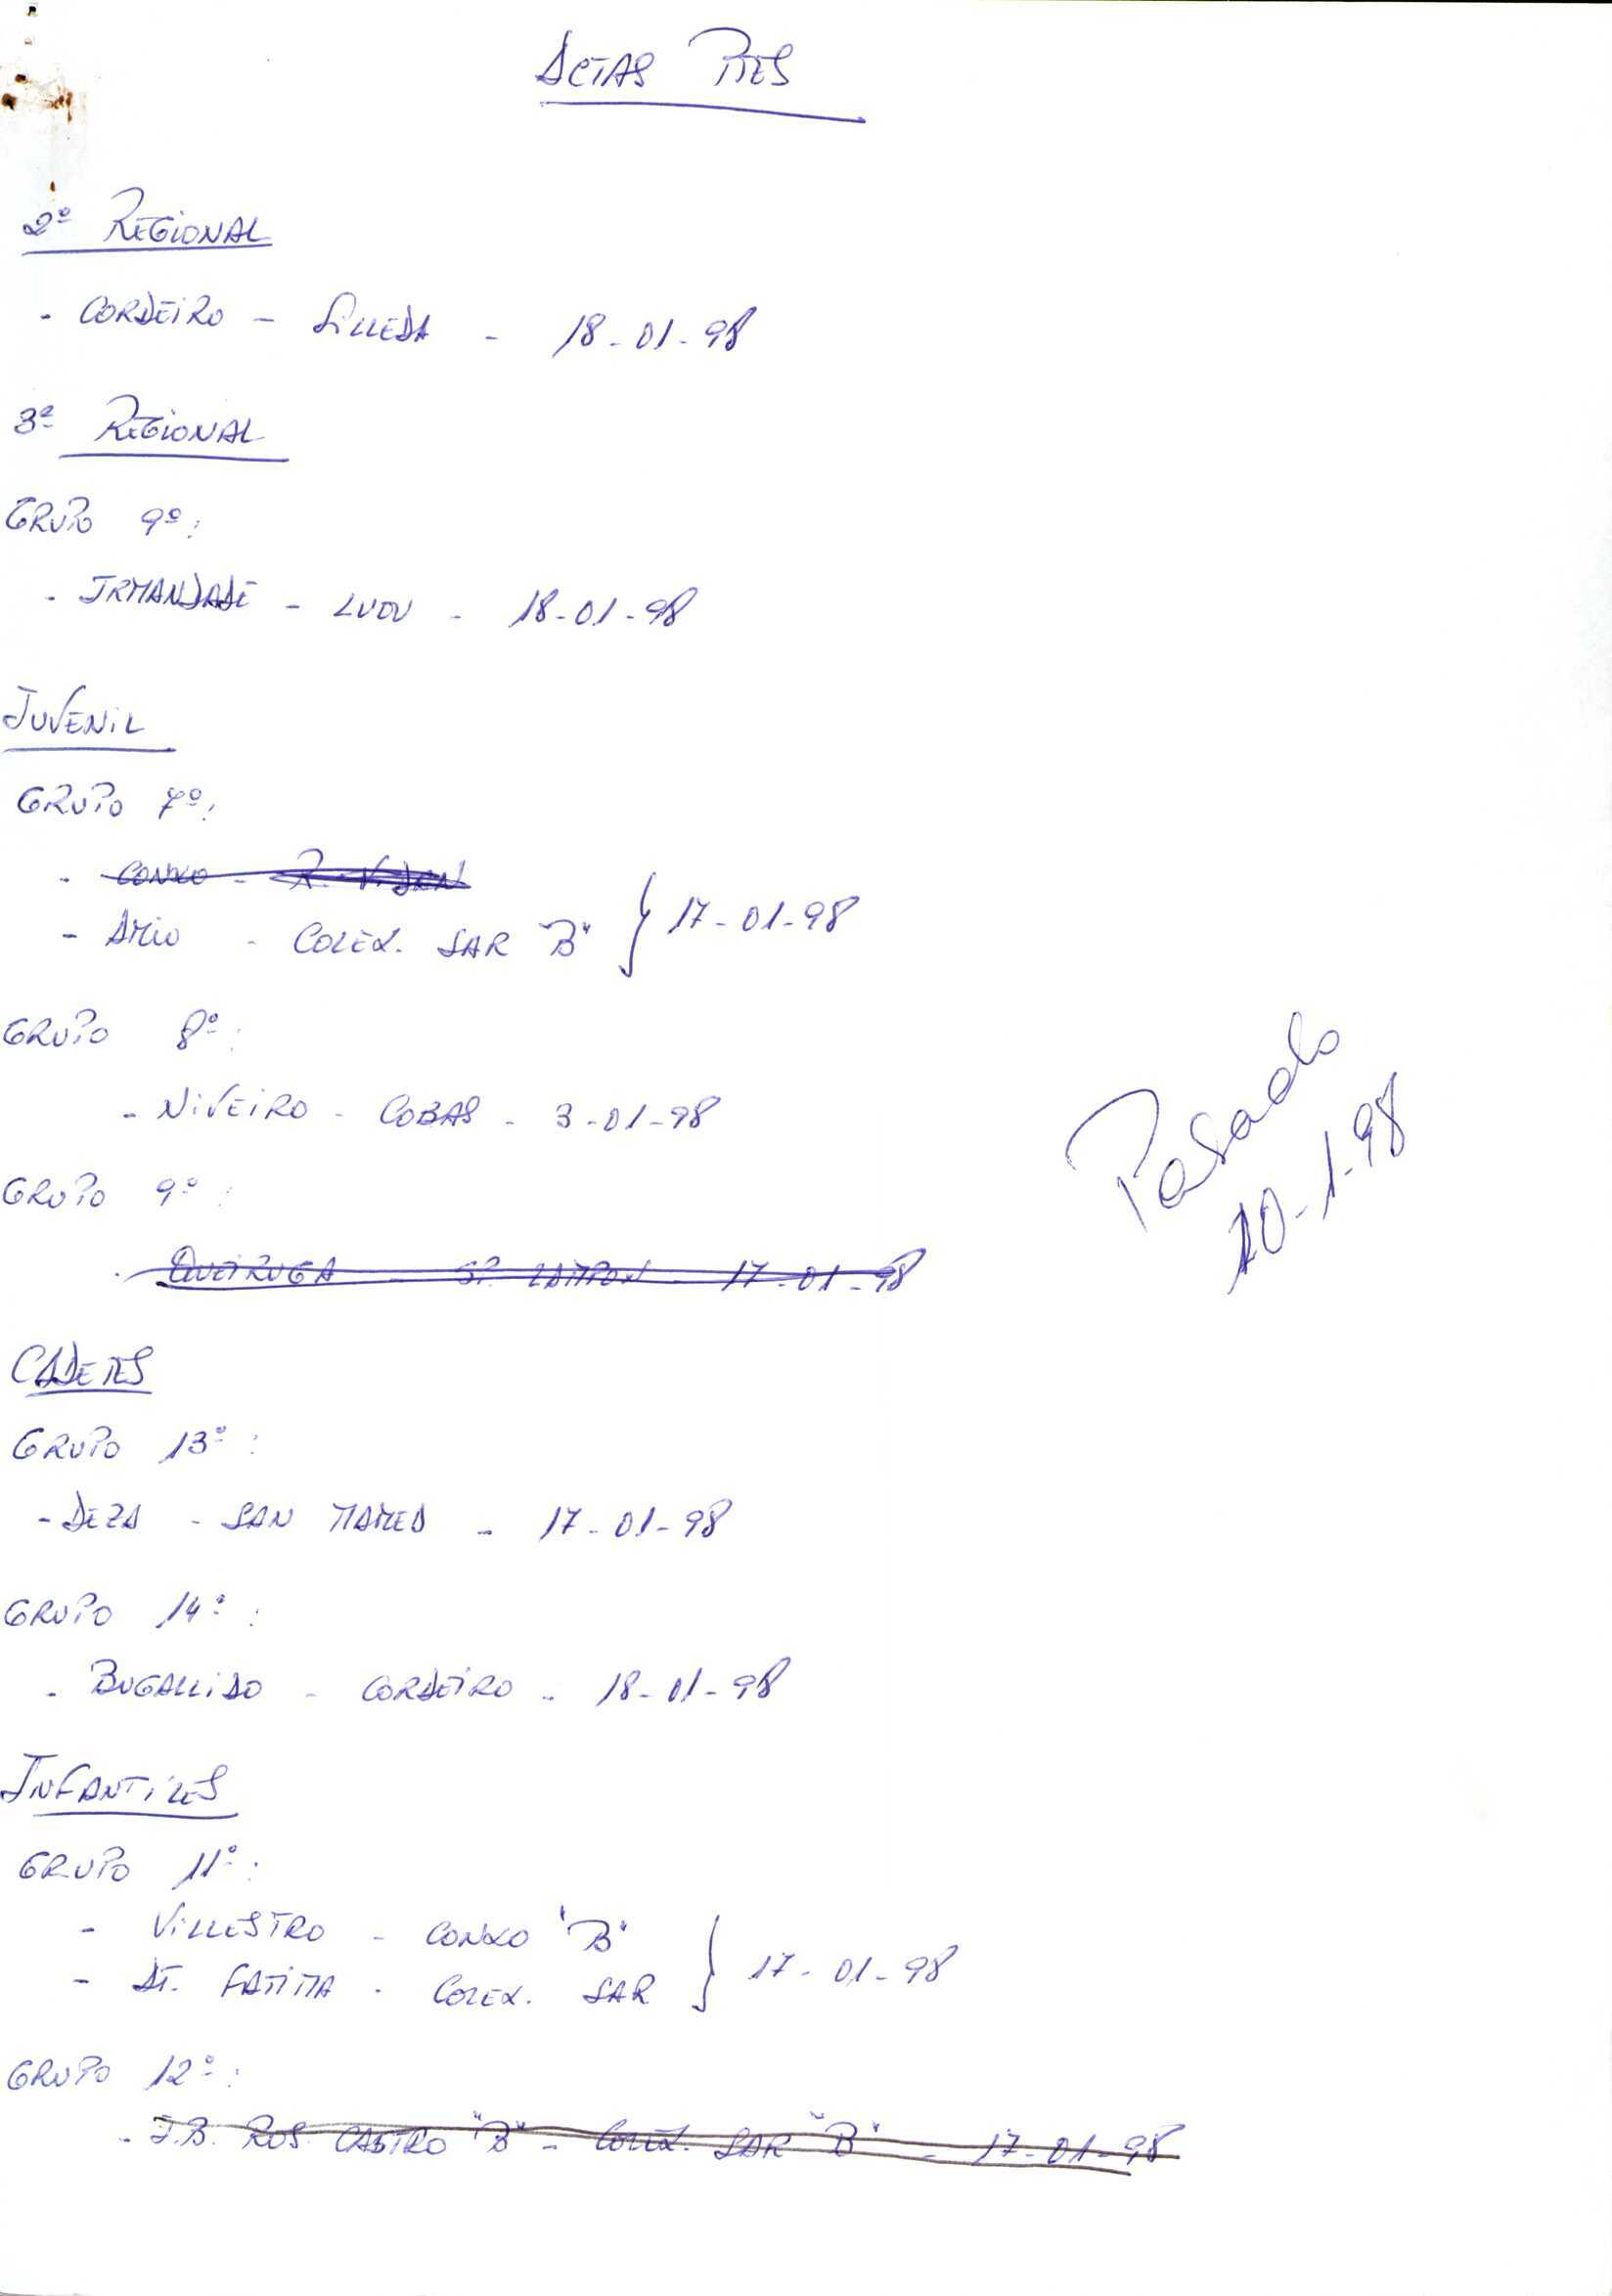 ACTAS PTES
2ª REGIONAL
- CORDEIRO - SILLEDA - 18-01-98
3ª REGIONAL
GRUPO 9º:
- IRMANDADE - LUOU - 18-01-98
JUVENIL
GRUPO 7º:
- CONXO - R. VIDAN
- AMIO - COLEX. SAR "B" } 17-01-98
GRUPO 8º:
- NIVEIRO - COBAS - 3-01-98
GRUPO 9º:
- QUEIRUGA - SP. ZAMPON - 17-01-98
Pasado
20-1-98
CADETES
GRUPO 13º:
- DEZA - SAN MAMED - 17-01-98
GRUPO 14º:
- BUGALLIDO - CORDEIRO - 18-01-98
INFANTILES
GRUPO 11º:
- VILLESTRO - CONXO "B"
- AT. FATIMA - COLEX. SAR } 17-01-98
GRUPO 12º:
- J.B. ROS. CASTRO "B" - COLEX. SAR "B" - 17-01-98